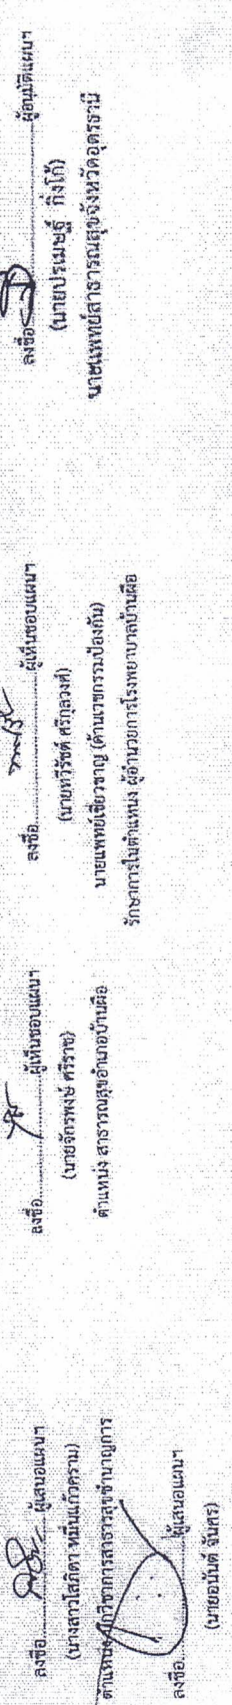 ลงชื่อ..........ผู้เสนอแผนฯ
(นางสาวโสภิตา หมื่นแก้วคราม)
ตำแหน่ง นักวิชาการสาธารณสุขชำนาญการ
ลงชื่อ..........ผู้เสนอแผนฯ
(นายอนันต์ จันศร)
ลงชื่อ..........ผู้เห็นชอบแผนฯ
(นายจักรพงษ์ ศรีราช)
ตำแหน่ง สาธารณสุขอำเภอบ้านผือ
ลงชื่อ..........ผู้เห็นชอบแผนฯ
(นายทวีรัชต์ ศรีกุลวงศ์)
นายแพทย์เชี่ยวชาญ (ด้านเวชกรรมป้องกัน)
รักษาการในตำแหน่ง ผู้อำนวยการโรงพยาบาลบ้านผือ
ลงชื่อ..........ผู้อนุมัติแผนฯ
(นายปรเมษฐ์ กิ่งโก้)
นายแพทย์สาธารณสุขจังหวัดอุดรธานี